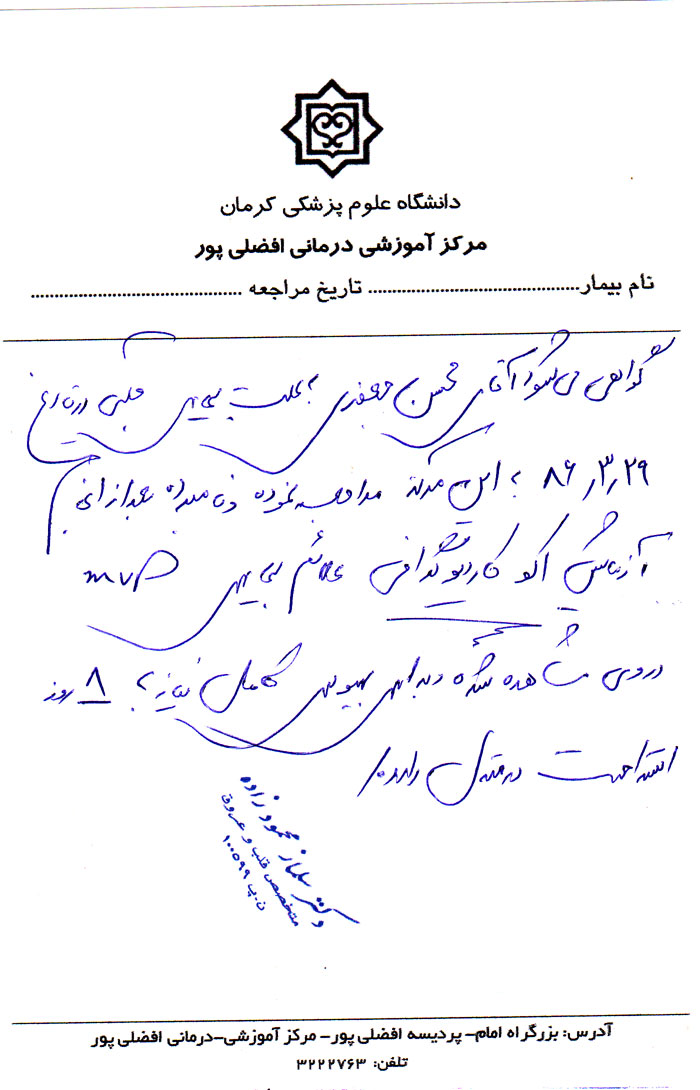 دانشگاه علوم پزشکی کرمان
مرکز آموزشی درمانی افضلی پور
نام بیمار............................................ تاریخ مراجعه ............................................
گواهی می شود آقای محسن جعفری بعلت بیماری قلبی در تاریخ
۸۶٫۳٫۲۹ به این مرکز مراجعه نموده و نامبرده بعد از انجام
آزمایش اکو کاردیوگرافی علائم بیماری MVP
در وی مشاهده شده و برای بهبودی کامل نیاز به ۸ روز
استراحت در منزل دارد
دکتر محمودزاده
متخصص قلب و عروق
ن.پ ۱۰۰۵۹۹
آدرس: بزرگراه امام- پردیسه افضلی پور- مرکز آموزشی-درمانی افضلی پور
تلفن: ۳۲۲۲۷۶۳